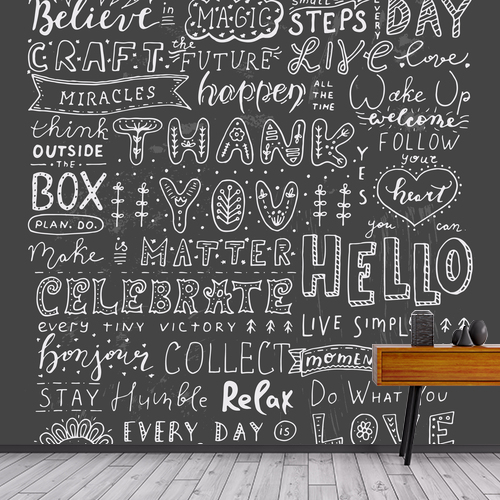 Believe in MAGIC small STEPS EVERY DAY
CRAFT the FUTURE LIVE love.
MIRACLES happen ALL THE TIME Wake Up
welcome
think OUTSIDE THE BOX THANK YES FOLLOW your heart
PLAN. DO. YOU you can
Make is MATTER HELLO
CELEBRATE
every TINY VICTORY LIVE SIMPL
bonjour COLLECT MOMEN
STAY Humble Relax Do What You
EVERY DAY IS LOVE